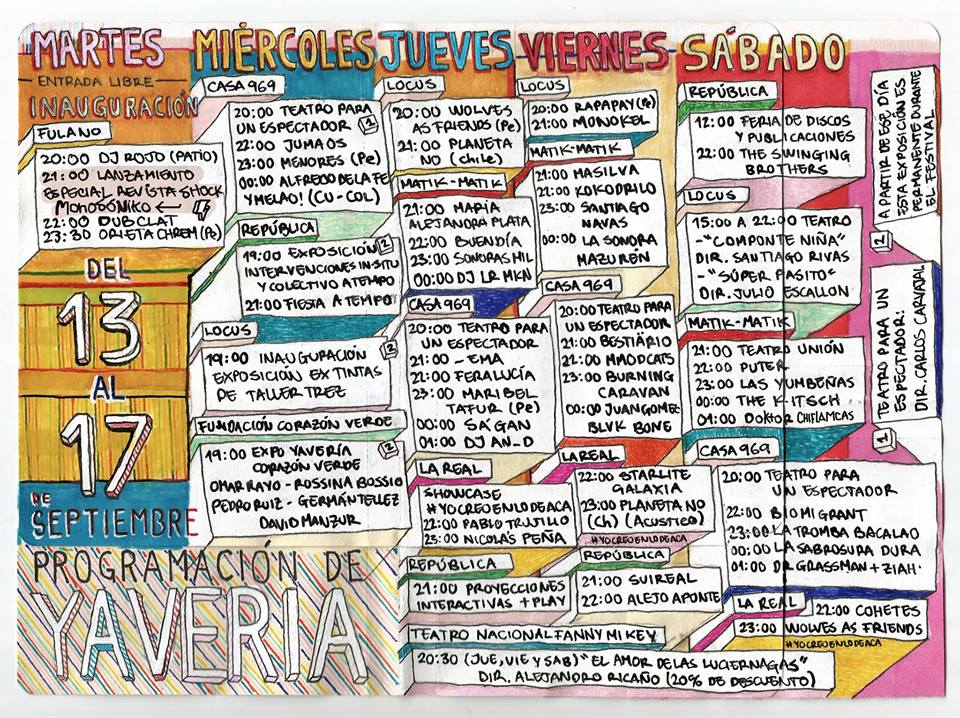 MARTES
ENTRADA LIBRE
INAUGURACIÓN
FULANO
20:00 DJ ROJO (PATIO)
21:00 LANZAMIENTO
ESPECIAL REVISTA SHOCK
22:00 DUBCLAT
23:30 ORIETA CHREM (Pe)
DEL
13
AL
17
DE
SEPTIEMBRE
PROGRAMACIÓN DE
YAVERIA
MIÉRCOLES
CASA 969
20:00 TEATRO PARA
UN ESPECTADOR 1
22:00 JUMAOS
23:00 MENORES (Pe)
00:00 ALFREDO DE LA FE
Y MELAO! (CU-COL)
REPÚBLICA
19:00 EXPOSICIÓN 2
INTERVENCIONES IN-SITU
Y COLECTIVO ATEMPO
21:00 FIESTA A TEMPO
LOCUS
19:00 INAUGURACIÓN 2
EXPOSICIÓN EX TINTAS
DE TALLER TREZ
FUNDACIÓN CORAZÓN VERDE
19:00 EXPO YAVERÍA 2
CORAZÓN VERDE
OMAR RAYO - ROSSINA BOSSIO
PEDRO RUIZ - GERMÁN TELLEZ
DAVID MANZUR
JUEVES
LOCUS
20:00 WOLVES
AS FRIENDS (Pe)
21:00 PLANETA
NO (chile)
MATIK-MATIK
21:00 MARÍA
ALEJANDRA PLATA
22:00 BUENDÍA
23:00 SONORAS MIL
00:00 DJ LR MKN
CASA 969
20:00 TEATRO PARA
UN ESPECTADOR
21:00 - EMA
22:00 FERALUCÍA
23:00 MARIBEL
TAFUR (Pe)
00:00 SA'GAN
01:00 DJ AN_D
LA REAL
SHOWCASE
#YOCREOENLODEACA
22:00 PABLO TRUJILLO
23:00 NICOLÁS PEÑA
REPÚBLICA
21:00 PROYECCIONES
INTERACTIVAS + PLAY
TEATRO NACIONAL FANNY MIKEY
20:30 (JUE, VIE Y SAB) "EL AMOR DE LAS LUCIERNAGAS"
DIR. ALEJANDRO RICAÑO (20% DE DESCUENTO)
VIERNES
LOCUS
20:00 RAPAPAY (Pe)
21:00 MONOKEL
MATIK-MATIK
21:00 MASILVA
21:00 KOKODRILO
23:00 SANTIAGO
NAVAS
00:00 LA SONORA
MAZUREN
CASA 969
20:00 TEATRO PARA
UN ESPECTADOR
21:00 BESTIÁRIO
22:00 MMODCATS
23:00 BURNING
CARAVAN
00:00 JUANGOMEZ
BLVK BONE
LA REAL
22:00 STARLITE
GALAXIA
23:00 PLANETA NO
(Ch) (ACUSTICO)
#YOCREOENLODEACA
REPÚBLICA
21:00 SUIREAL
22:00 ALEJO APONTE
SÁBADO
REPÚBLICA
12:00 FERIA DE DISCOS
Y PUBLICACIONES
22:00 THE SWINGING
BROTHERS
LOCUS
15:00 A 22:00 TEATRO
-"COMPONTE NIÑA"
DIR. SANTIAGO RIVAS
-"SÚPER PASITO"
DIR. JULIO ESCALLON
MATIK-MATIK
21:00 TEATRO UNIÓN
22:00 PUTER
23:00 LAS YUMBEÑAS
00:00 THE K-ITSCH
01:00 DOKTOR CHIFLAMCAS
CASA 969
20:00 TEATRO PARA
UN ESPECTADOR
22:00 BIOMIGRANT
23:00 LA TROMBA BACALAO
00:00 LA SABROSURA DURA
01:00 DR GRASSMAN + ZIAH
LA REAL
22:00 COHETES
23:00 WOLVES AS FRIENDS
#YOCREOENLODEACA
A PARTIR DE ESE DÍA
ESTA EXPOSICIÓN ES
PERMANENTE DURANTE
EL FESTIVAL
2
TEATRO PARA UN
ESPECTADOR:
DIR. CARLOS CARVAJAL
1